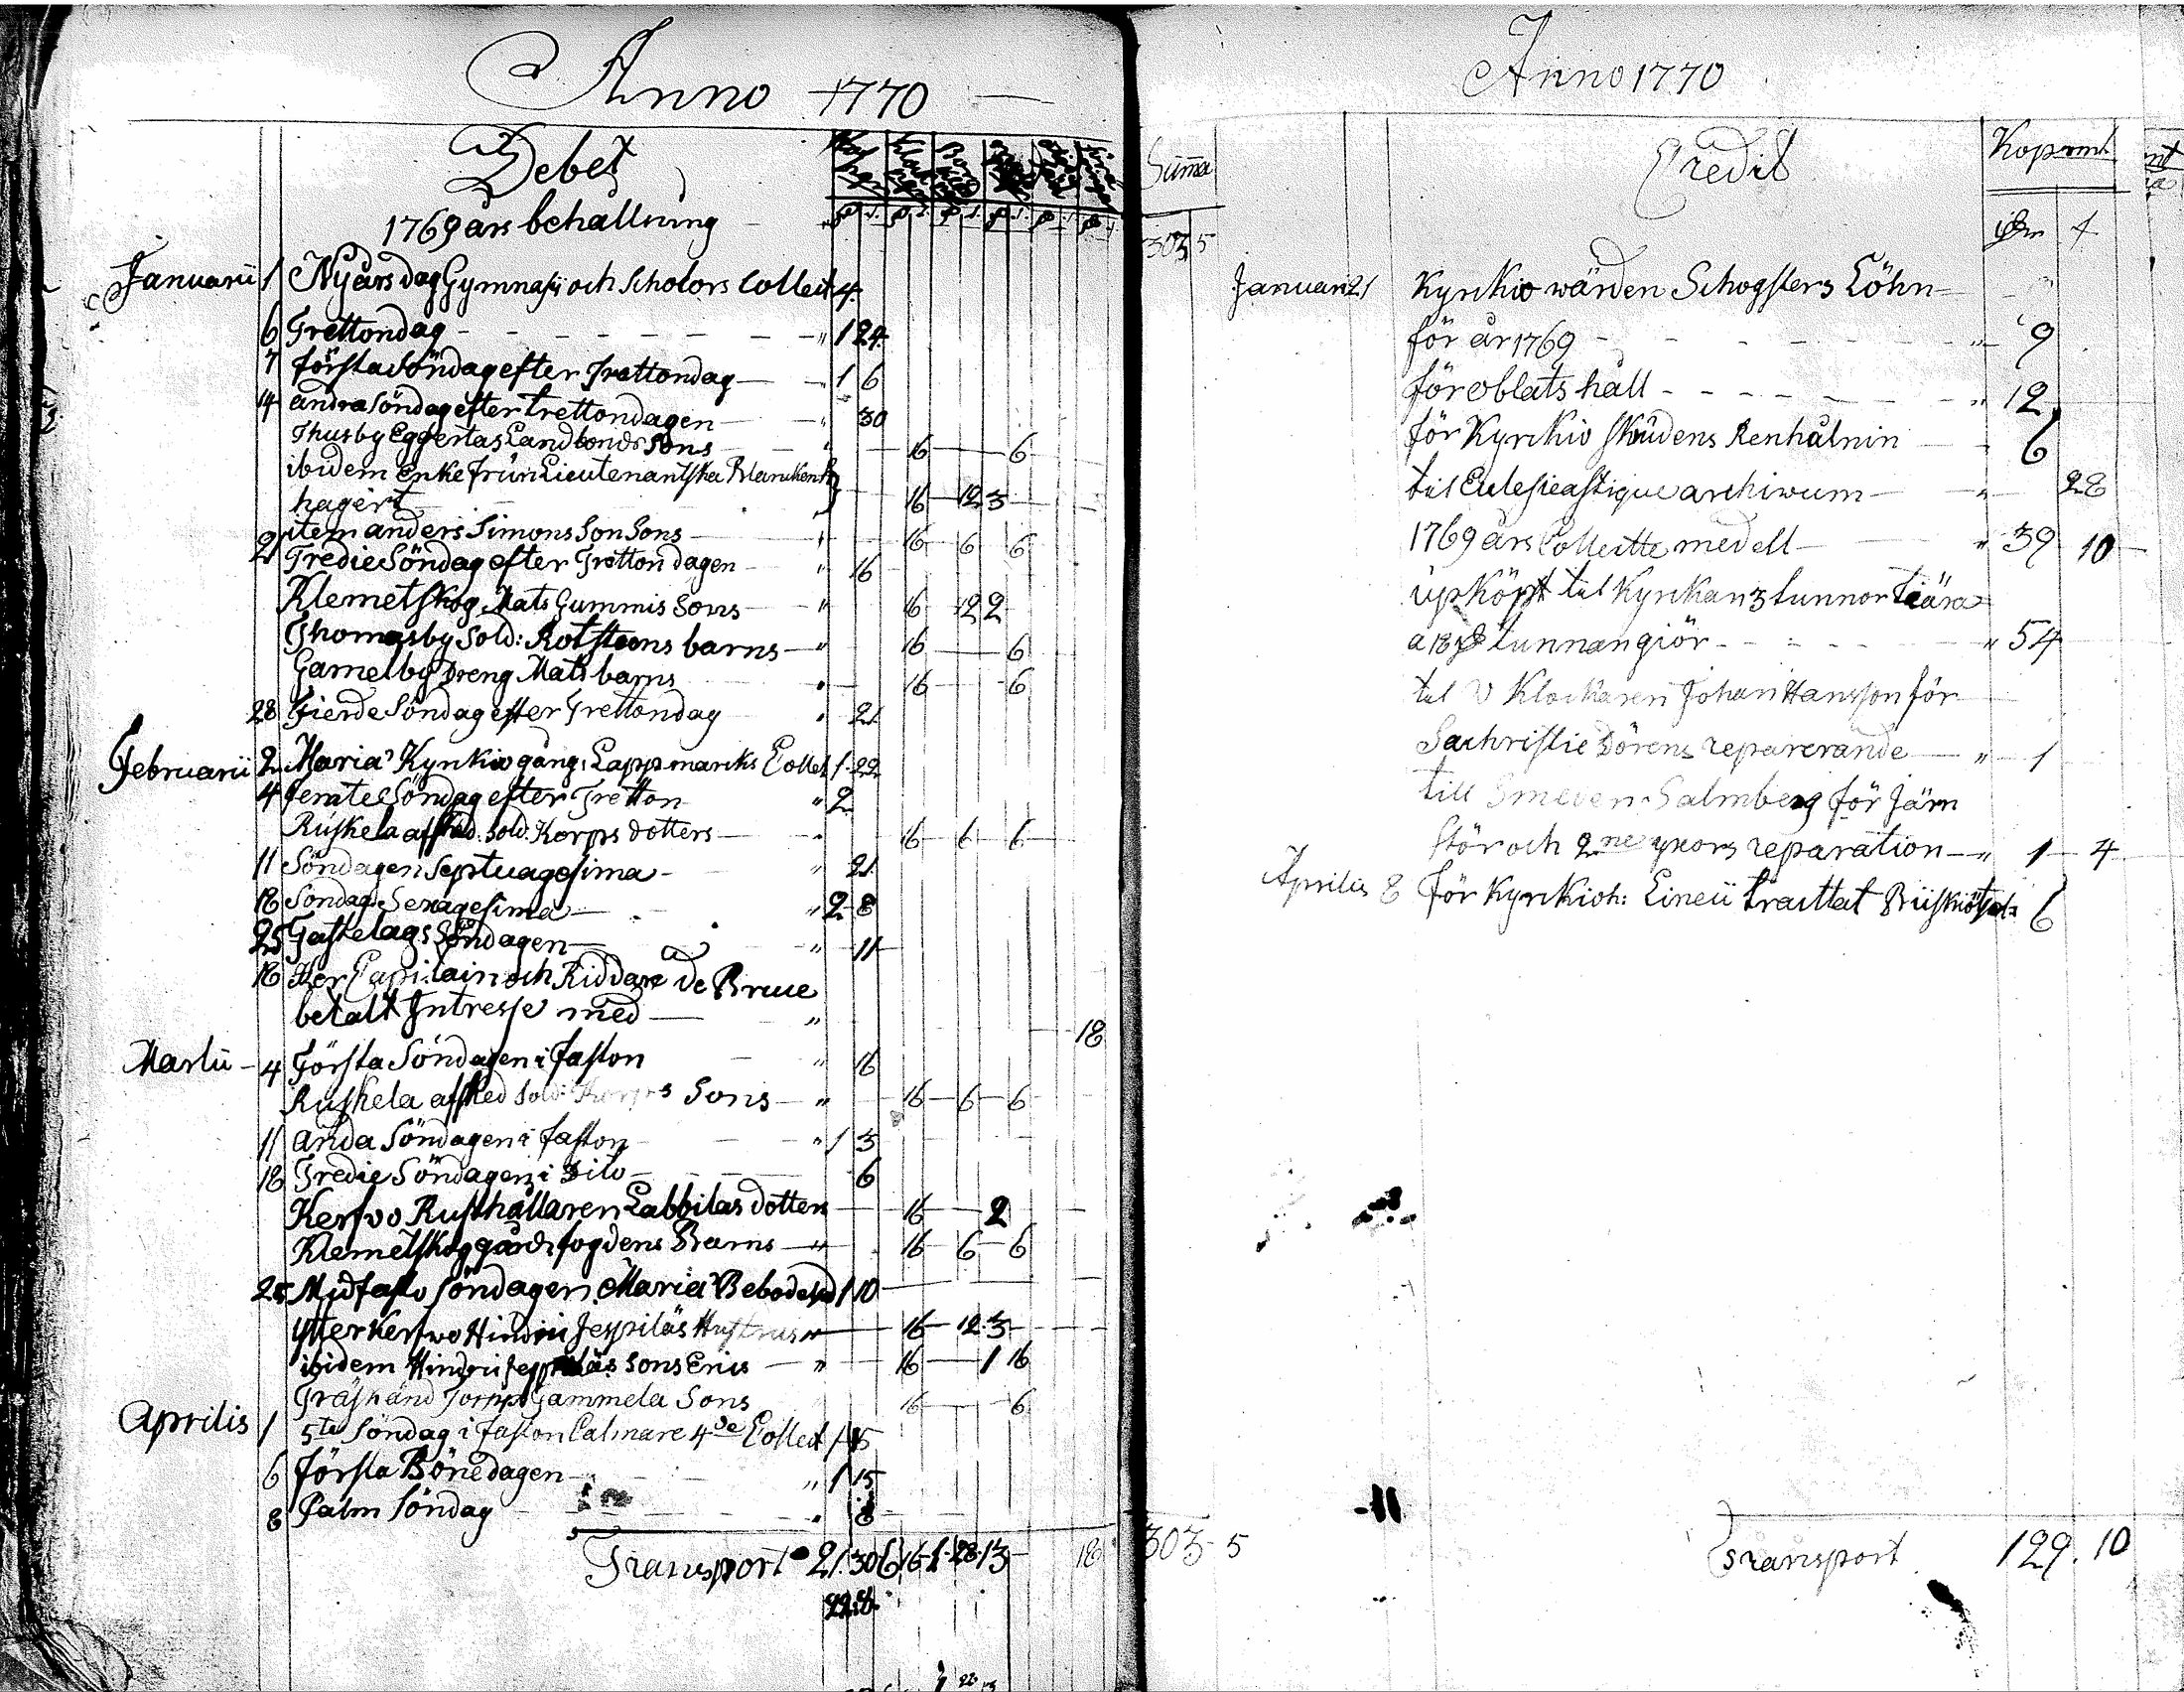 Anno 1770
Debet
1769 års behållning
Januarii 1 Nyårsdag Gymnasii och Scholors Collect 4
6 Trettondag " 1 24
7 första Söndag efter Trettondag " 1 6
14 andra Söndag efter trettondagen " 30
Thusby Eggertas Landbonds Sons " 16 6
ibidem Enke frun Lieutenantska Blancken
hagert 16 12 3
item anders Simons Son Sons " 16 6 6
21 Tredie Söndag efter Trettondagen " 16
Klemetskog Mats Gummis Sons " 16 12 2
Thomasby Sold: Rotsteens barns " 16 6
Gamelby Dreng Mats barns " 16 6
28 Fierde Söndag efter Trettondag " 21
Februarii 2 Maria Kyrkiogång, Lappmarcks Collect 1 22
4 femte Söndag efter Tretton " 2
Ruskela afsked. Sold. Korps dotters " 16 6 6
11 Söndagen Septuagesima " 21
18 Söndag Sexagesima " 2 8
25 Fastelags Söndagen " 11
18 Her Capitain och Riddare de Bruce
betalt Intresse med " 18
Martii 4 Första Söndagen i faston " 16
Ruskela afsked Sold: Korps Sons " 16 6 6
11 anda Söndagen i faston " 1 3
18 Tredie Söndagen i dito 6
Kerfvo Rusthållaren Labbilas dotters 16 2
Klemetskog gårdsfogdens Barns " 16 6 6
25 Midfasto Söndagen Maria Bebodelse 1 10
Ytterkerfwo Hindric Jespiläs Hustrus " 16 12 3
ibidem Hindric Jespiläs Sons Erics " 16 1 16
Träskänd Torpp Gammela Sons 16 6
Aprilis 1 5te Söndag i faston Calmare 4de Collect 1 15
6 första Bönedagen " 1 15
8 Palm Söndag " 8
Transport 21. 30 6 16 1 28 13 18
22.8.
Summa
303 5
303 5
Anno 1770
Credit
Kopmt
Januari 21 Kyrkio wärden Schogsters Löhn
för år 1769 " 9
för oblats håll " 12
för Kyrckio skrudens Renhålnin 6
til Eclesieastique archiwum " 28
1769 års Collectte medell " 39 10
upköpt til Kyrkan 3 tunnor tiära
a 18 tunnan giör " 54
til V Klockaren Johan Hansson för
Sachristie dörens reparerande " 1
till Smeden Salmberg för järn
stör och 2ne ykors reparation " 1 4
Aprilis 8 för Kyrkioh: tracttat 6
Transport 129. 10